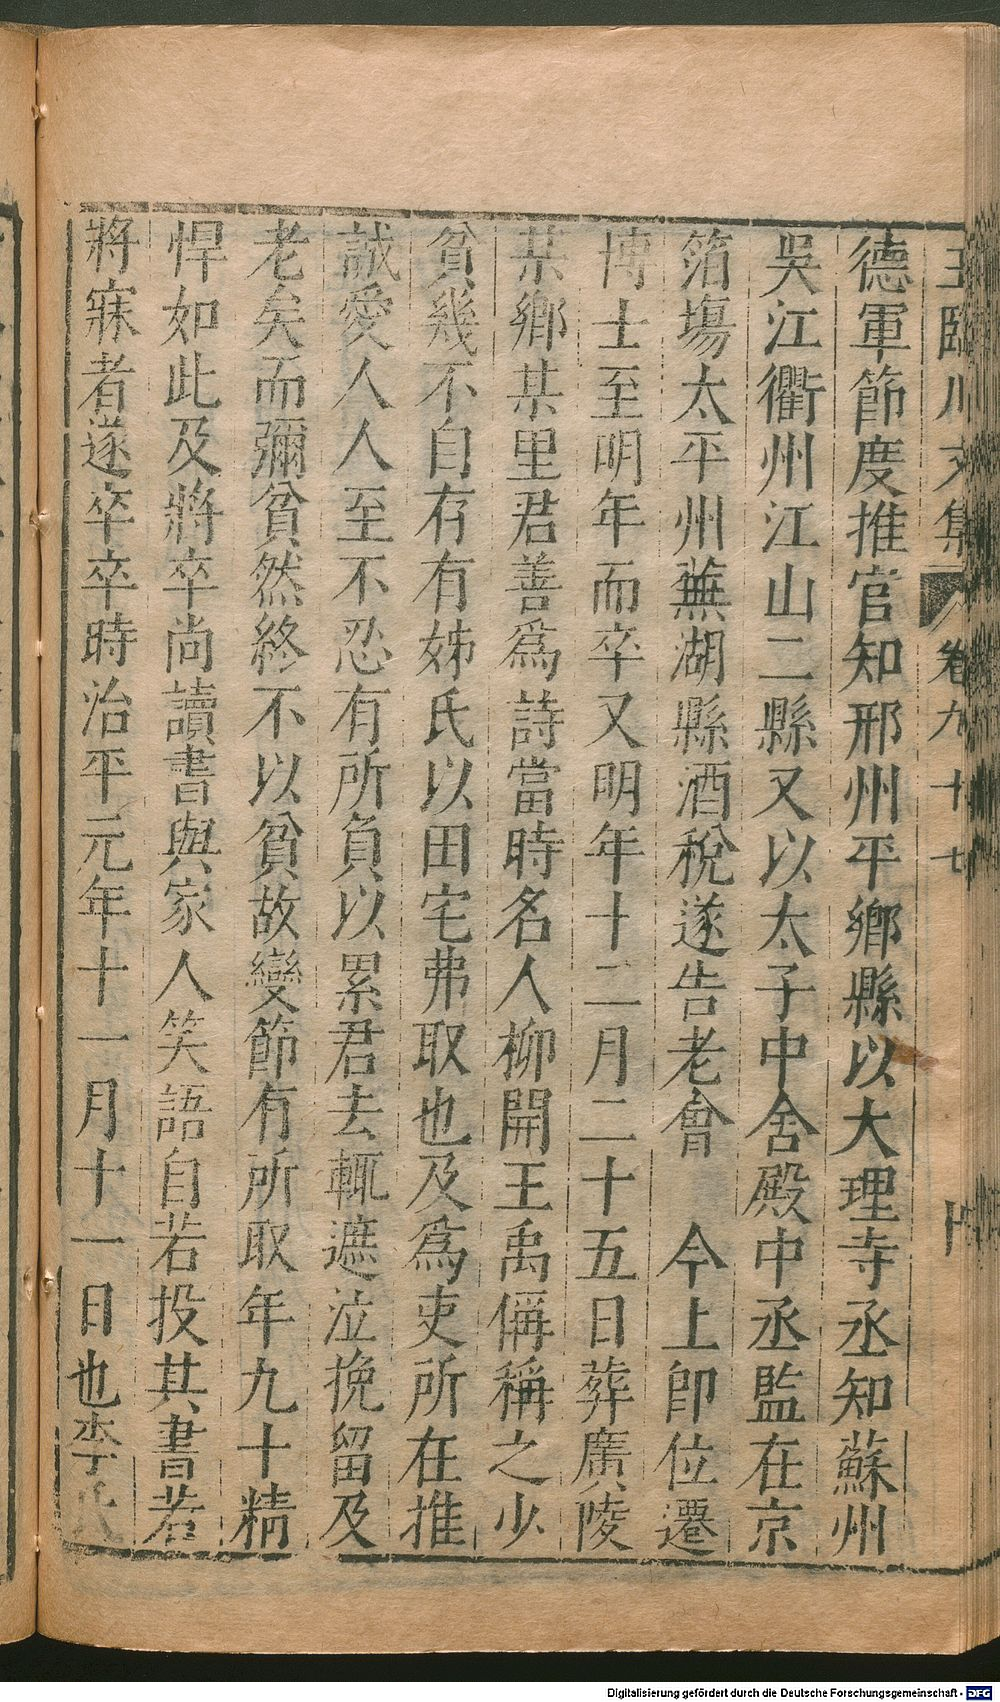 王臨川文集 卷九十七
德軍節度推官知邢州平鄉縣以大理寺丞知蘇州
吳江衢州江山二縣又以太子中舍殿中丞監在京
箔塲太平州蕪湖縣酒稅遂告老會　今上卽位遷
博士至明年而卒又明年十二月二十五日葬廣陵
某鄉某里君善爲詩當時名人柳開王禹偁稱之少
貧幾不自存有姊氏以田宅弗取也及爲吏所在推
誠愛人人至不忍有所負以累君去輒遮泣挽留及
老矣而彌貧然終不以貧故變節有所取年九十精
悍如此及將卒尚讀書與家人笑語自若投其書若
將寐者遂卒卒時治平元年十一月十一日也李氏
Digitalisierung gefördert durch die Deutsche Forschungsgemeinschaft - DFG